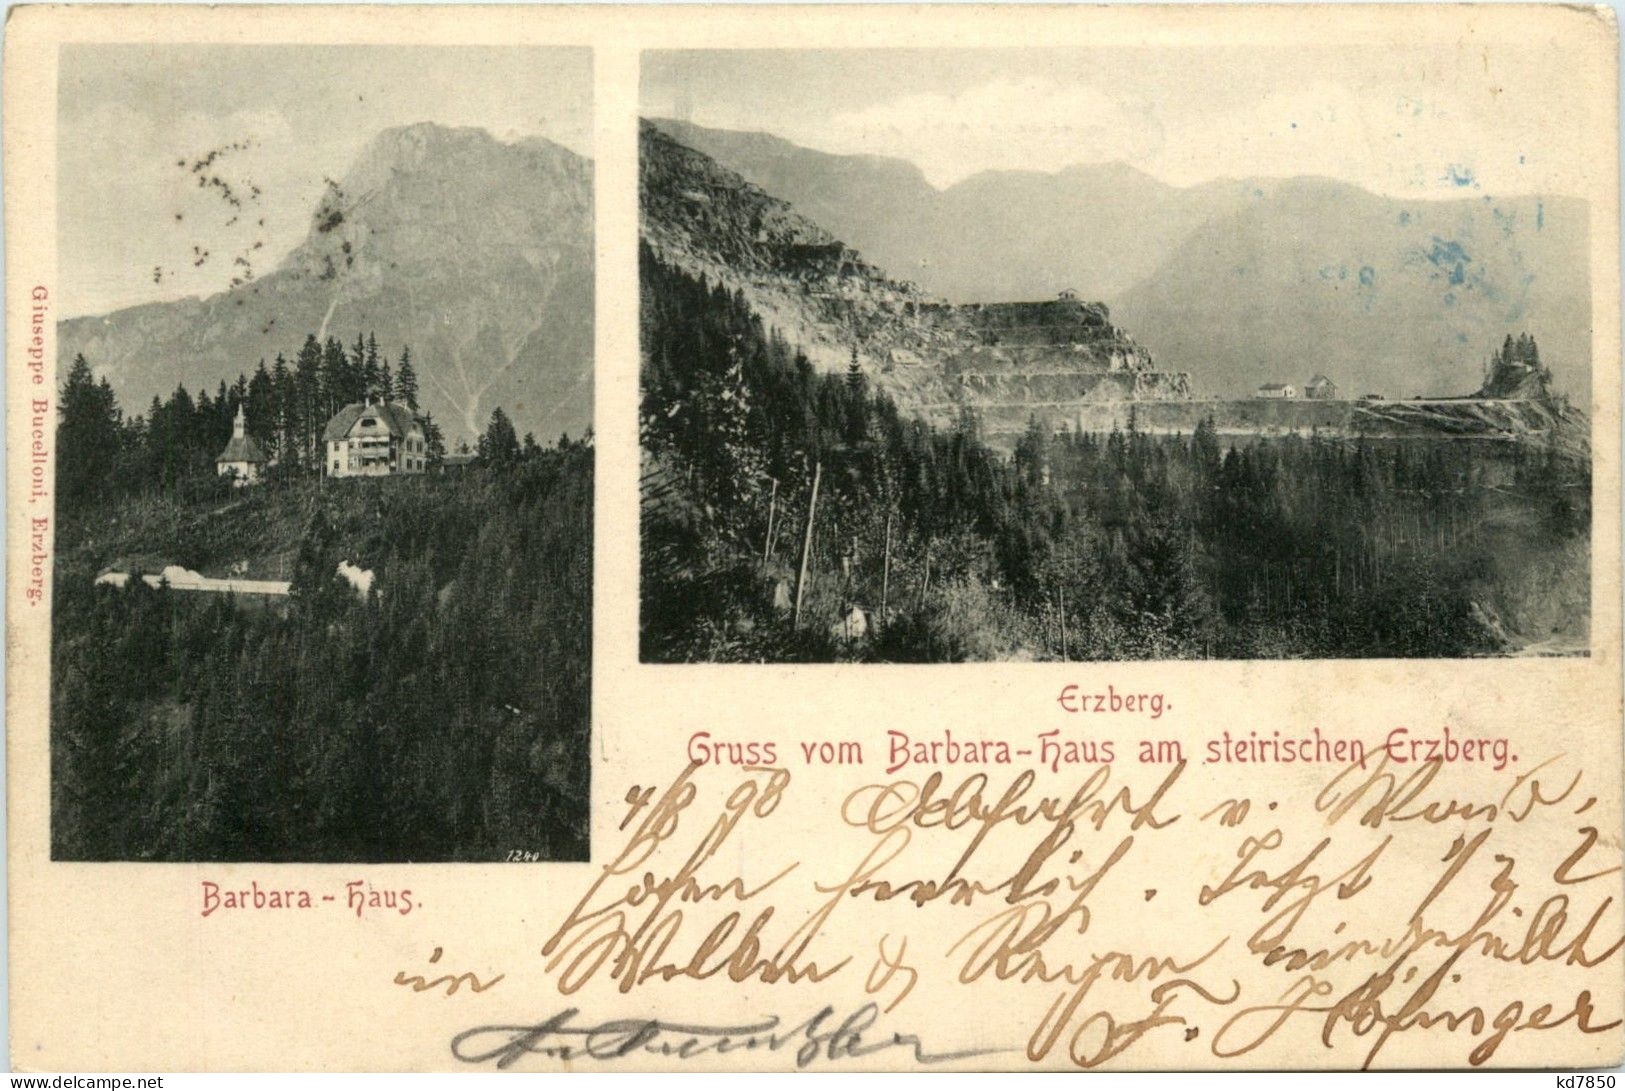 Giuseppe Bucelloni, Erzberg.
1240
Barbara-Haus.
Erzberg.
Gruss vom Barbara-Haus am steirischen Erzberg.
4/8 98 Abfahrt v.
hofen herrlich. Jetzt 1/2 2
in Wolken & Regen eingehüllt
F.
www.delcampe.net
kd7850